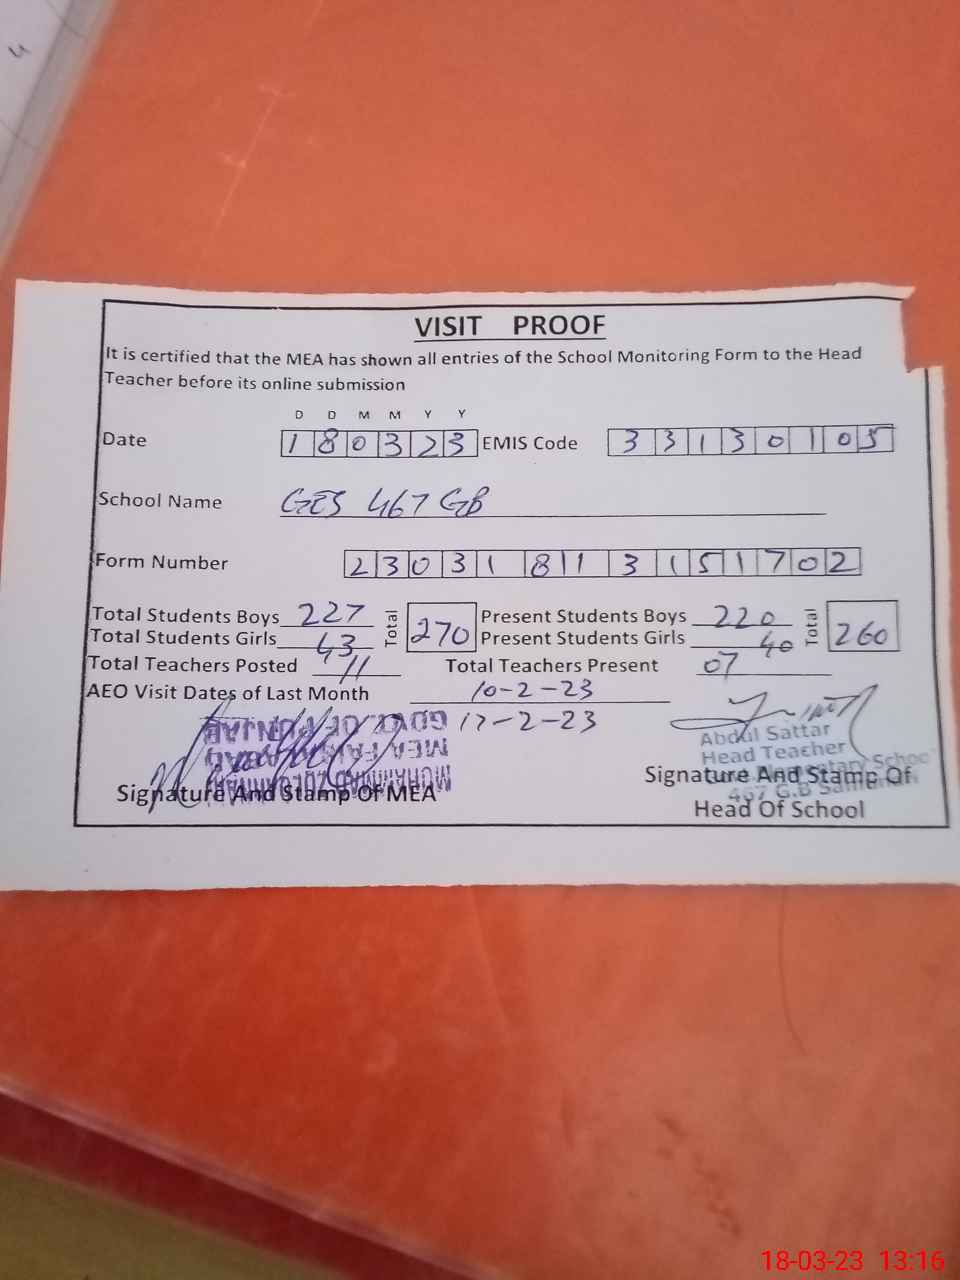 4
VISIT PROOF
It is certified that the MEA has shown all entries of the School Monitoring Form to the Head
Teacher before its online submission
D D M M Y Y
Date 1 8 0 3 2 3 EMIS Code 3 3 1 3 0 1 0 5
School Name GES 467 GB
Form Number 2 3 0 3 1 8 1 1 3 1 5 1 7 0 2
Total Students Boys 227 Total 270 Present Students Boys 220 Total 260
Total Students Girls 43 Present Students Girls 40
Total Teachers Posted 11 Total Teachers Present 07
AEO Visit Dates of Last Month 10-2-23
17-2-23
GOVT. OF PUNJAB
MEA FAISALABAD
MUHAMMAD
Signature And Stamp Of MEA
Abdul Sattar
Head Teacher
Elementary School
467 G.B
Signature And Stamp Of
Head Of School
18-03-23 13:16